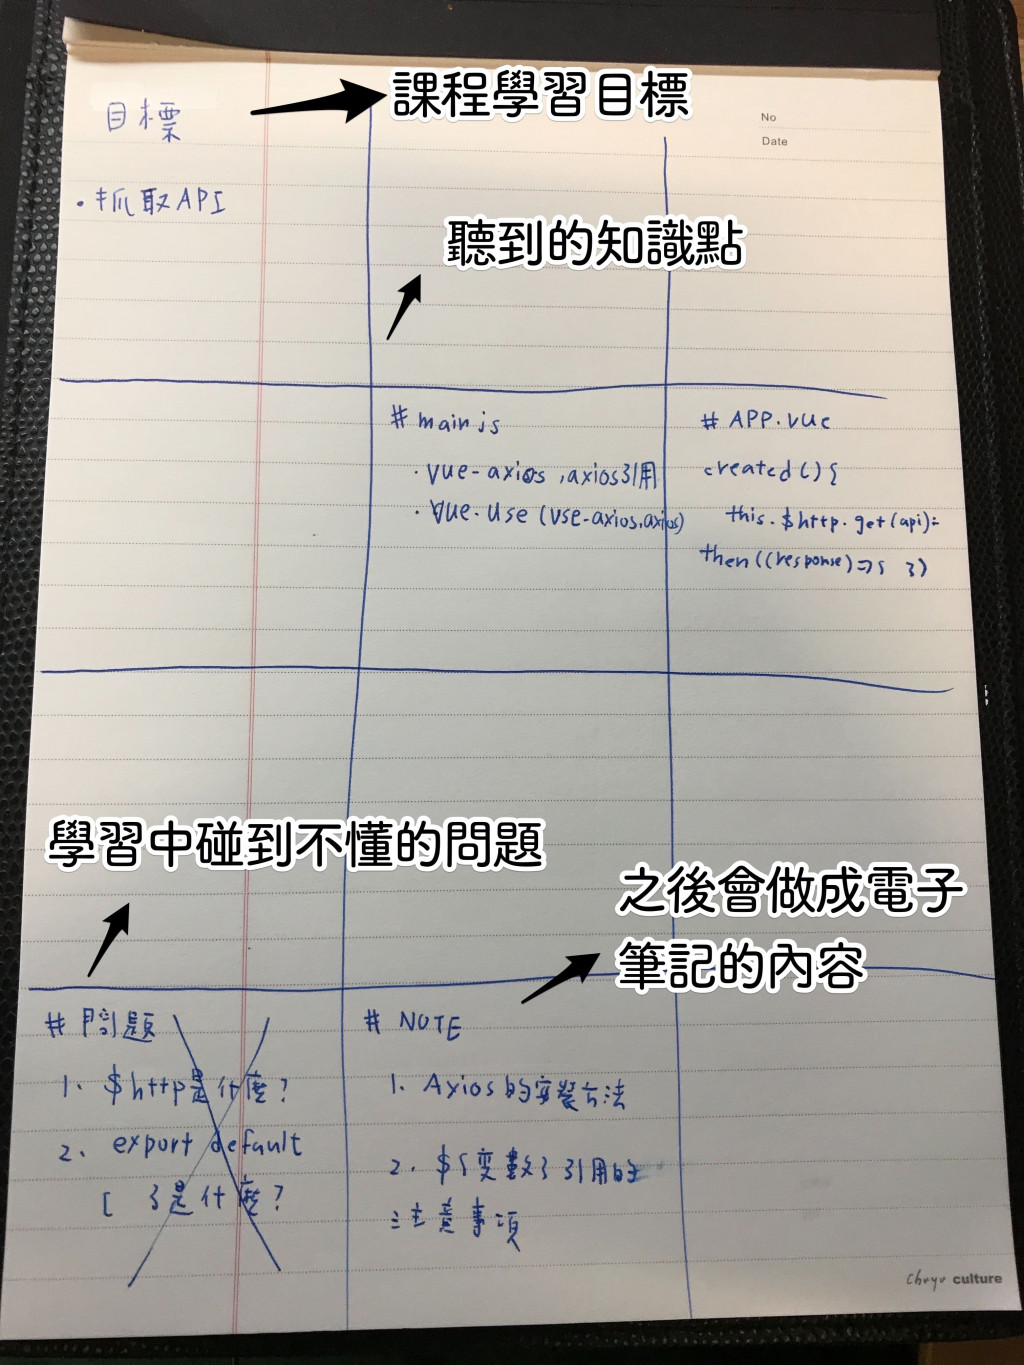 目標
課程學習目標
No
Date
・抓取API
聽到的知識點
# main.js
・vue-axios, axios引用
・Vue.use (vse-axios,axios)
# APP.vue
created(){
this.$http.get(api).
then((response)=>{ })
學習中碰到不懂的問題
之後會做成電子
筆記的內容
# 問題
1. $http是什麼?
2. export default
{ }是什麼?
# NOTE
1. Axios的安裝方法
2. ${變數}引用的
注意事項
Chuyu culture